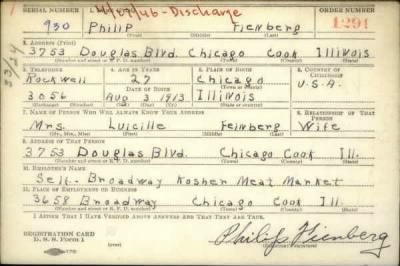 SERIAL NUMBER 1. NAME (Print) ORDER NUMBER
Discharge
930 Philip Fienberg 1291
(First) (Middle) (Last)
2. ADDRESS (Print)
3753 Douglas Blvd. Chicago Cook Illinois
(Number and street or R. F. D. number) (Town) (County) (State)
3. TELEPHONE 4. AGE IN YEARS 5. PLACE OF BIRTH 6. COUNTRY OF CITIZENSHIP
Rockwell 27 Chicago
DATE OF BIRTH (Town or county) U.S.A.
3056 Aug 3 1913 Illinois
(Exchange) (Number) (Mo.) (Day) (Yr.) (State or country)
7. NAME OF PERSON WHO WILL ALWAYS KNOW YOUR ADDRESS 8. RELATIONSHIP OF THAT PERSON
Mrs. Luicille Feinberg Wife
(Mr., Mrs., Miss) (First) (Middle) (Last)
9. ADDRESS OF THAT PERSON
3753 Douglas Blvd. Chicago Cook Ill.
(Number and street or R. F. D. number) (Town) (County) (State)
10. EMPLOYER'S NAME
Self - Broadway Kosher Meat Market
11. PLACE OF EMPLOYMENT OR BUSINESS
3658 Broadway Chicago Cook Ill
(Number and street or R. F. D. number) (Town) (County) (State)
I AFFIRM THAT I HAVE VERIFIED ABOVE ANSWERS AND THAT THEY ARE TRUE.
REGISTRATION CARD
D. S. S. Form 1
Philip Fienberg
(Registrant's signature)